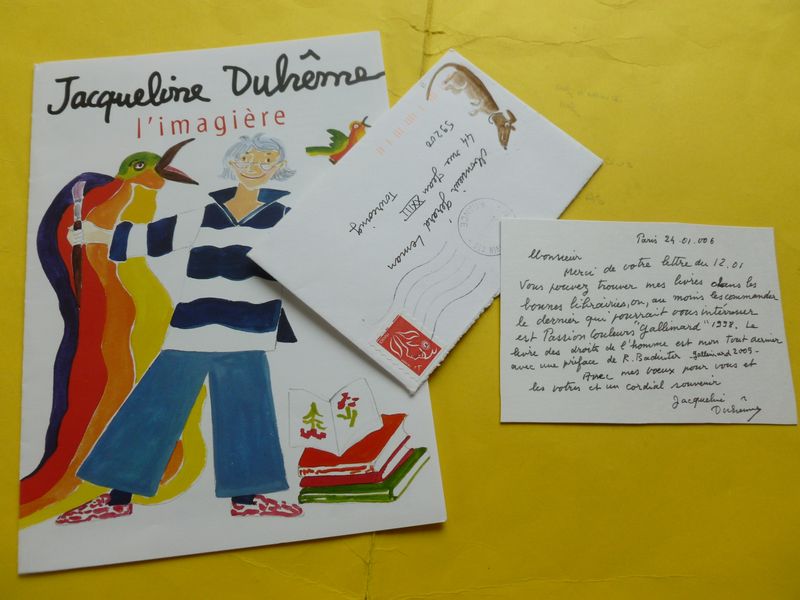 Jacqueline Duhême
l'imagière
Monsieur Gérard Leman
44 rue Jean XXIII
59200
Tourcoing
Paris 24.01.006
Monsieur
Merci de votre lettre du 12.01
Vous pouvez trouver mes livres dans les
bonnes librairies, ou, au moins les commander
le dernier qui pourrait vous intéresser
est Passion Couleurs "Gallimard" 1998. Le
livre des droits de l'homme est mon tout dernier
avec une préface de R. Badinter - Gallimard 2005 -
Avec mes vœux pour vous et
les votres et un cordial souvenir
Jacqueline
Duhême